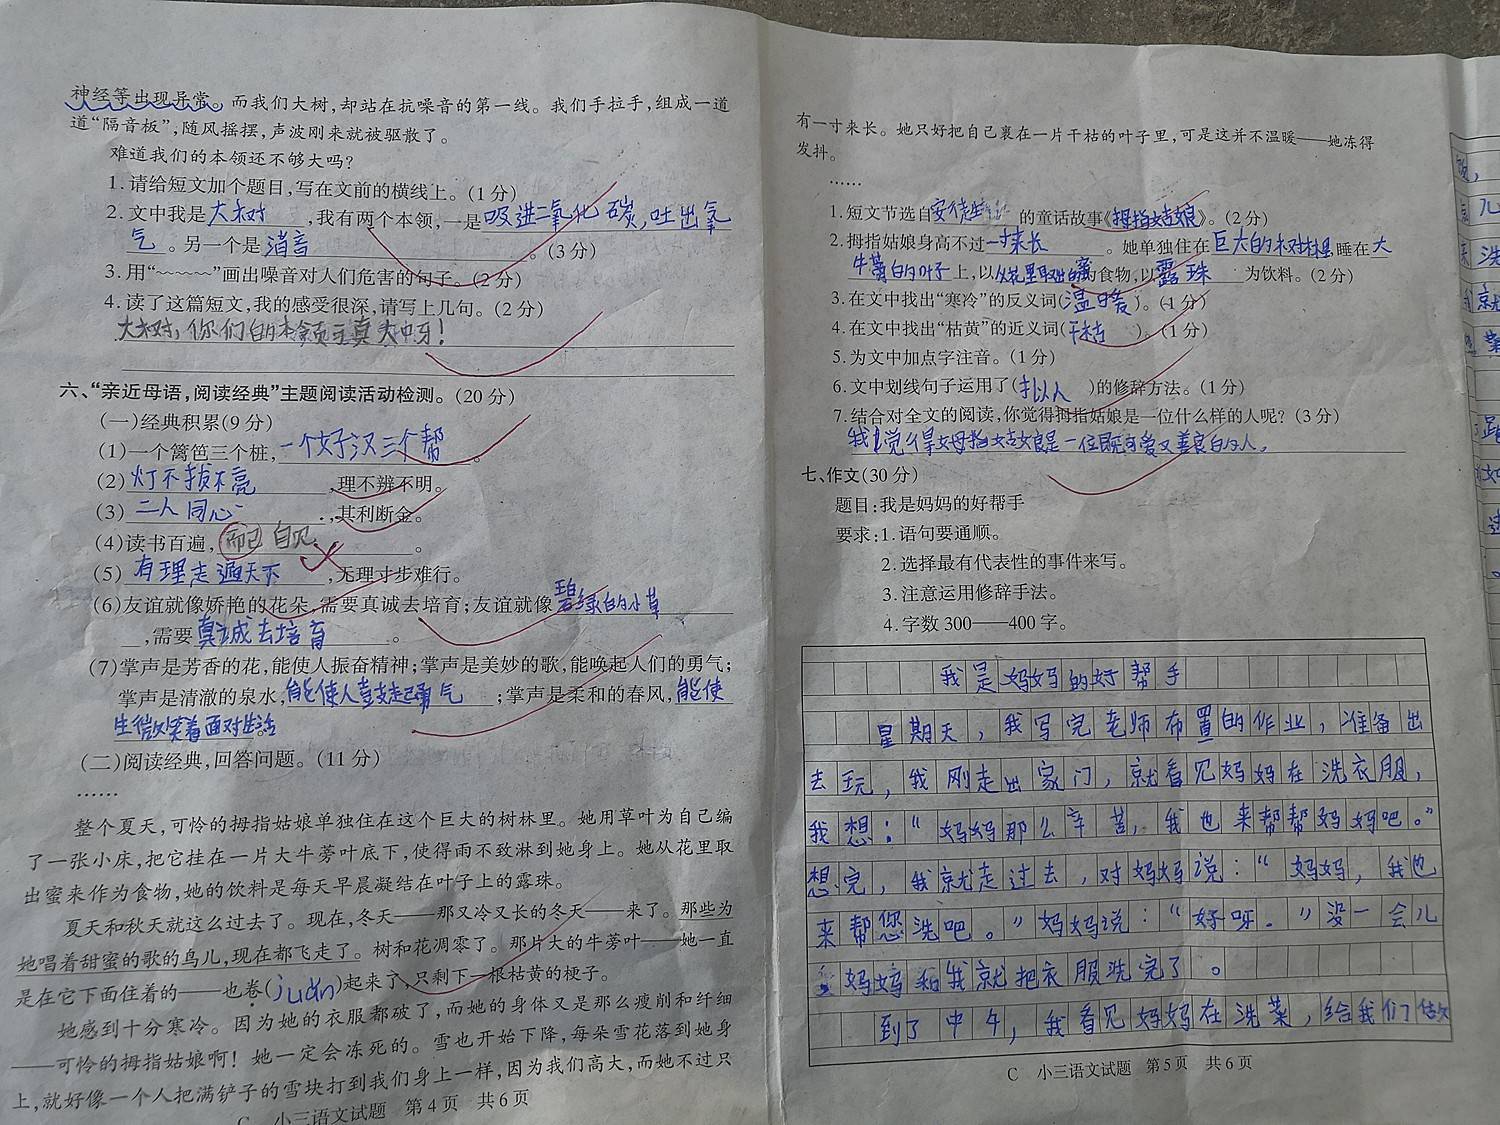 神经等出现异常。而我们大树,却站在抗噪音的第一线。我们手拉手,组成一道
道“隔音板”,随风摇摆,声波刚来就被驱散了。
难道我们的本领还不够大吗?
1.请给短文加个题目,写在文前的横线上。(1分)
2.文中我是大树,我有两个本领,一是吸进二氧化碳,吐出氧
气。另一个是消音。(3分)
3.用“~~~~~~”画出噪音对人们危害的句子。(2分)
4.读了这篇短文,我的感受很深,请写上几句。(2分)
大树,你们的本领真大呀!
六、“亲近母语,阅读经典”主题阅读活动检测。(20分)
(一)经典积累(9分)
(1)一个篱笆三个桩,一个好汉三个帮。
(2)灯不拨不亮,理不辨不明。
(3)二人同心,其利断金。
(4)读书百遍,而己自见。
(5)有理走遍天下,无理寸步难行。
(6)友谊就像娇艳的花朵,需要真诚去培育;友谊就像碧绿的小草
,需要真诚去培育。
(7)掌声是芳香的花,能使人振奋精神;掌声是美妙的歌,能唤起人们的勇气;
掌声是清澈的泉水,能使人鼓起勇气;掌声是柔和的春风,能使
生微笑着面对生活
(二)阅读经典,回答问题。(11分)
……
整个夏天,可怜的拇指姑娘单独住在这个巨大的树林里。她用草叶为自己编
了一张小床,把它挂在一片大牛蒡叶底下,使得雨不致淋到她身上。她从花里取
出蜜来作为食物,她的饮料是每天早晨凝结在叶子上的露珠。
夏天和秋天就这么过去了。现在,冬天——那又冷又长的冬天——来了。那些为
她唱着甜蜜的歌的鸟儿,现在都飞走了。树和花凋零了。那片大的牛蒡叶——她一直
是在它下面住着的——也卷(juǎn)起来了,只剩下一根枯黄的梗子。
她感到十分寒冷。因为她的衣服都破了,而她的身体又是那么瘦削和纤细
——可怜的拇指姑娘啊!她一定会冻死的。雪也开始下降,每朵雪花落到她身
上,就好像一个人把满铲子的雪块打到我们身上一样,因为我们高大,而她不过只
C 小三语文试题 第4页 共6页
有一寸来长。她只好把自己裹在一片干枯的叶子里,可是这并不温暖——她冻得
发抖。
……
1.短文节选自安徒生的童话故事《拇指姑娘》。(2分)
2.拇指姑娘身高不过一寸来长。她单独住在巨大的树林里,睡在大
牛蒡的叶子上,以从花里取出的蜜为食物,以露珠为饮料。(2分)
3.在文中找出“寒冷”的反义词(温暖)。(1分)
4.在文中找出“枯黄”的近义词(干枯)。(1分)
5.为文中加点字注音。(1分)
6.文中划线句子运用了(拟人)的修辞方法。(1分)
7.结合对全文的阅读,你觉得拇指姑娘是一位什么样的人呢?(3分)
我觉得拇指姑娘是一位既可爱又善良的人。
七、作文(30分)
题目:我是妈妈的好帮手
要求:1.语句要通顺。
2.选择最有代表性的事件来写。
3.注意运用修辞手法。
4.字数300——400字。
我是妈妈的好帮手
星期天,我写完老师布置的作业,准备出
去玩,我刚走出家门,就看见妈妈在洗衣服,
我想:“妈妈那么辛苦,我也来帮帮妈妈吧。”
想完,我就走过去,对妈妈说:“妈妈,我也
来帮您洗吧。”妈妈说:“好呀。”没一会儿
妈妈和我就把衣服洗完了。
到了中午,我看见妈妈在洗菜,给我们做
C 小三语文试题 第5页 共6页